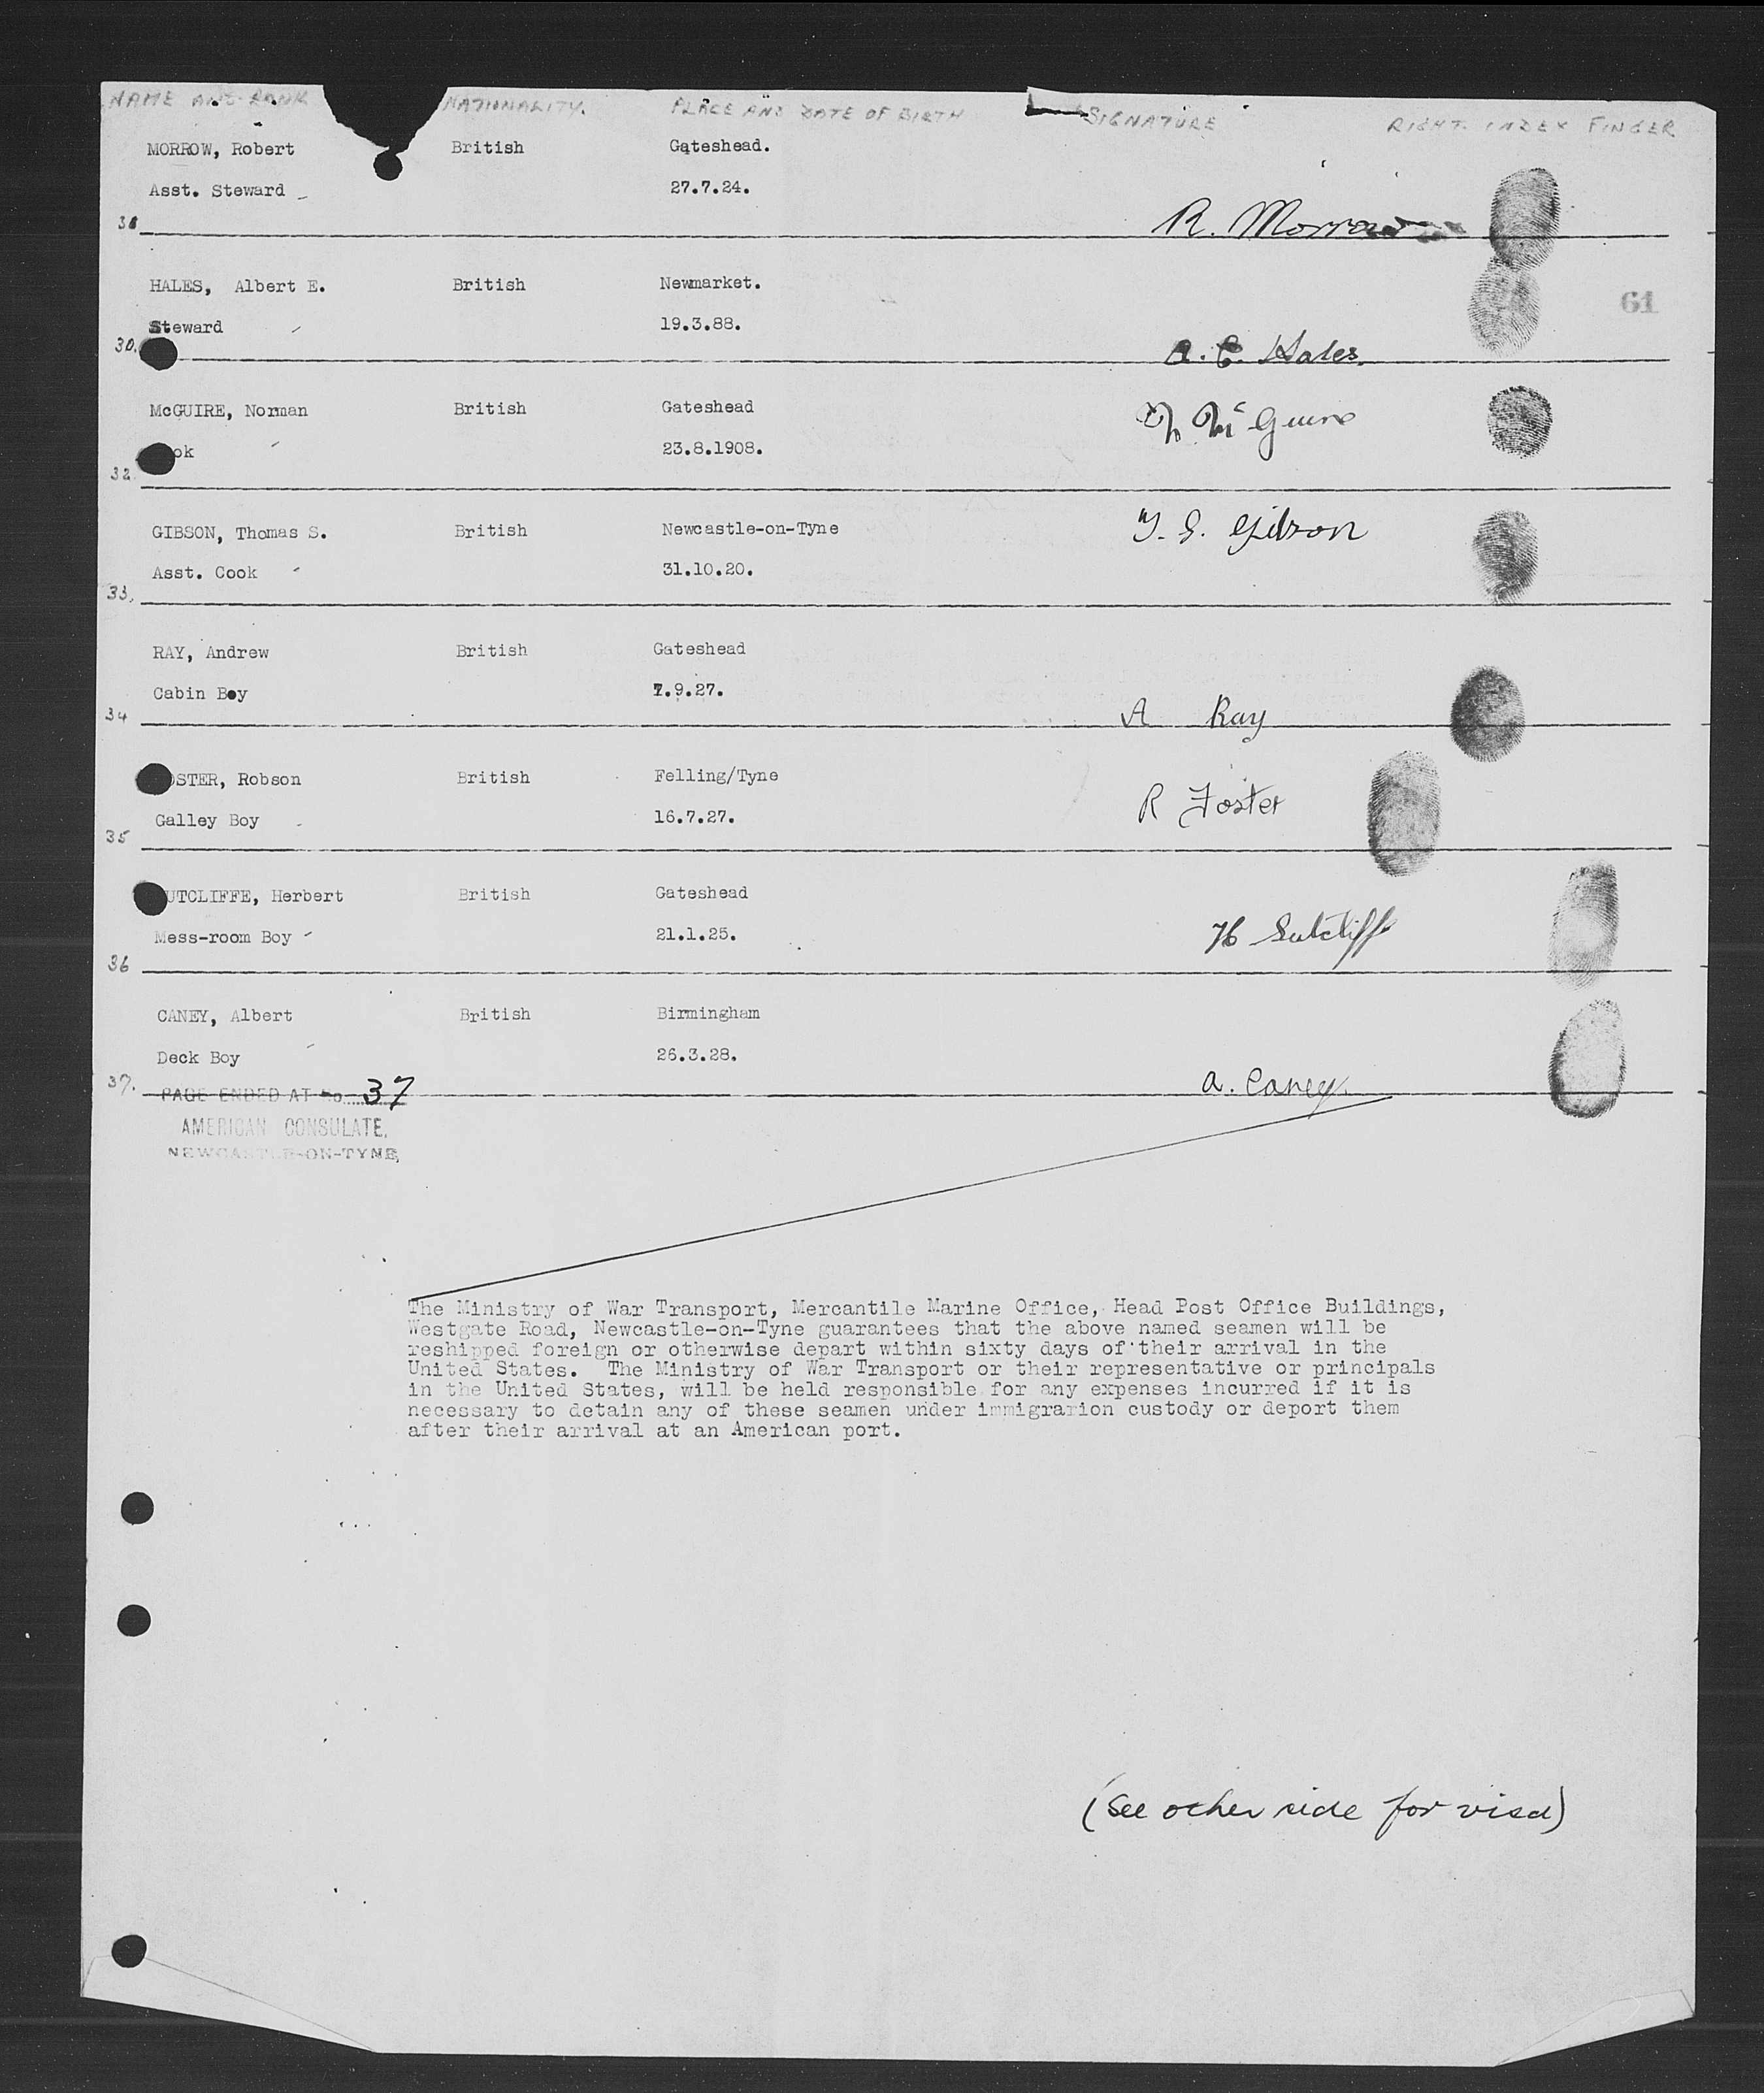 NAME AND RANK NATIONALITY. PLACE AND DATE OF BIRTH SIGNATURE RIGHT INDEX FINGER
MORROW, Robert British Gateshead.
Asst. Steward 27.7.24.
R. Morrow
61
HALES, Albert E. British Newmarket.
Steward 19.3.88.
30. A. E. Hales.
McGUIRE, Norman British Gateshead N McGuire
ok 23.8.1908.
32
GIBSON, Thomas S. British Newcastle-on-Tyne T. S. Gibson
Asst. Cook 31.10.20.
33.
RAY, Andrew British Gateshead
Cabin Boy 7.9.27.
34 A Ray
OSTER, Robson British Felling/Tyne R Foster
Galley Boy 16.7.27.
35
UTCLIFFE, Herbert British Gateshead
Mess-room Boy 21.1.25. H Sutcliffe
36
CANEY, Albert British Birmingham
Deck Boy 26.3.28.
37. PAGE ENDED AT No. 37 A. Caney.
AMERICAN CONSULATE,
NEWCASTLE-ON-TYNE,
The Ministry of War Transport, Mercantile Marine Office, Head Post Office Buildings,
Westgate Road, Newcastle-on-Tyne guarantees that the above named seamen will be
reshipped foreign or otherwise depart within sixty days of their arrival in the
United States. The Ministry of War Transport or their representative or principals
in the United States, will be held responsible for any expenses incurred if it is
necessary to detain any of these seamen under immigrarion custody or deport them
after their arrival at an American port.
(See other side for visa)